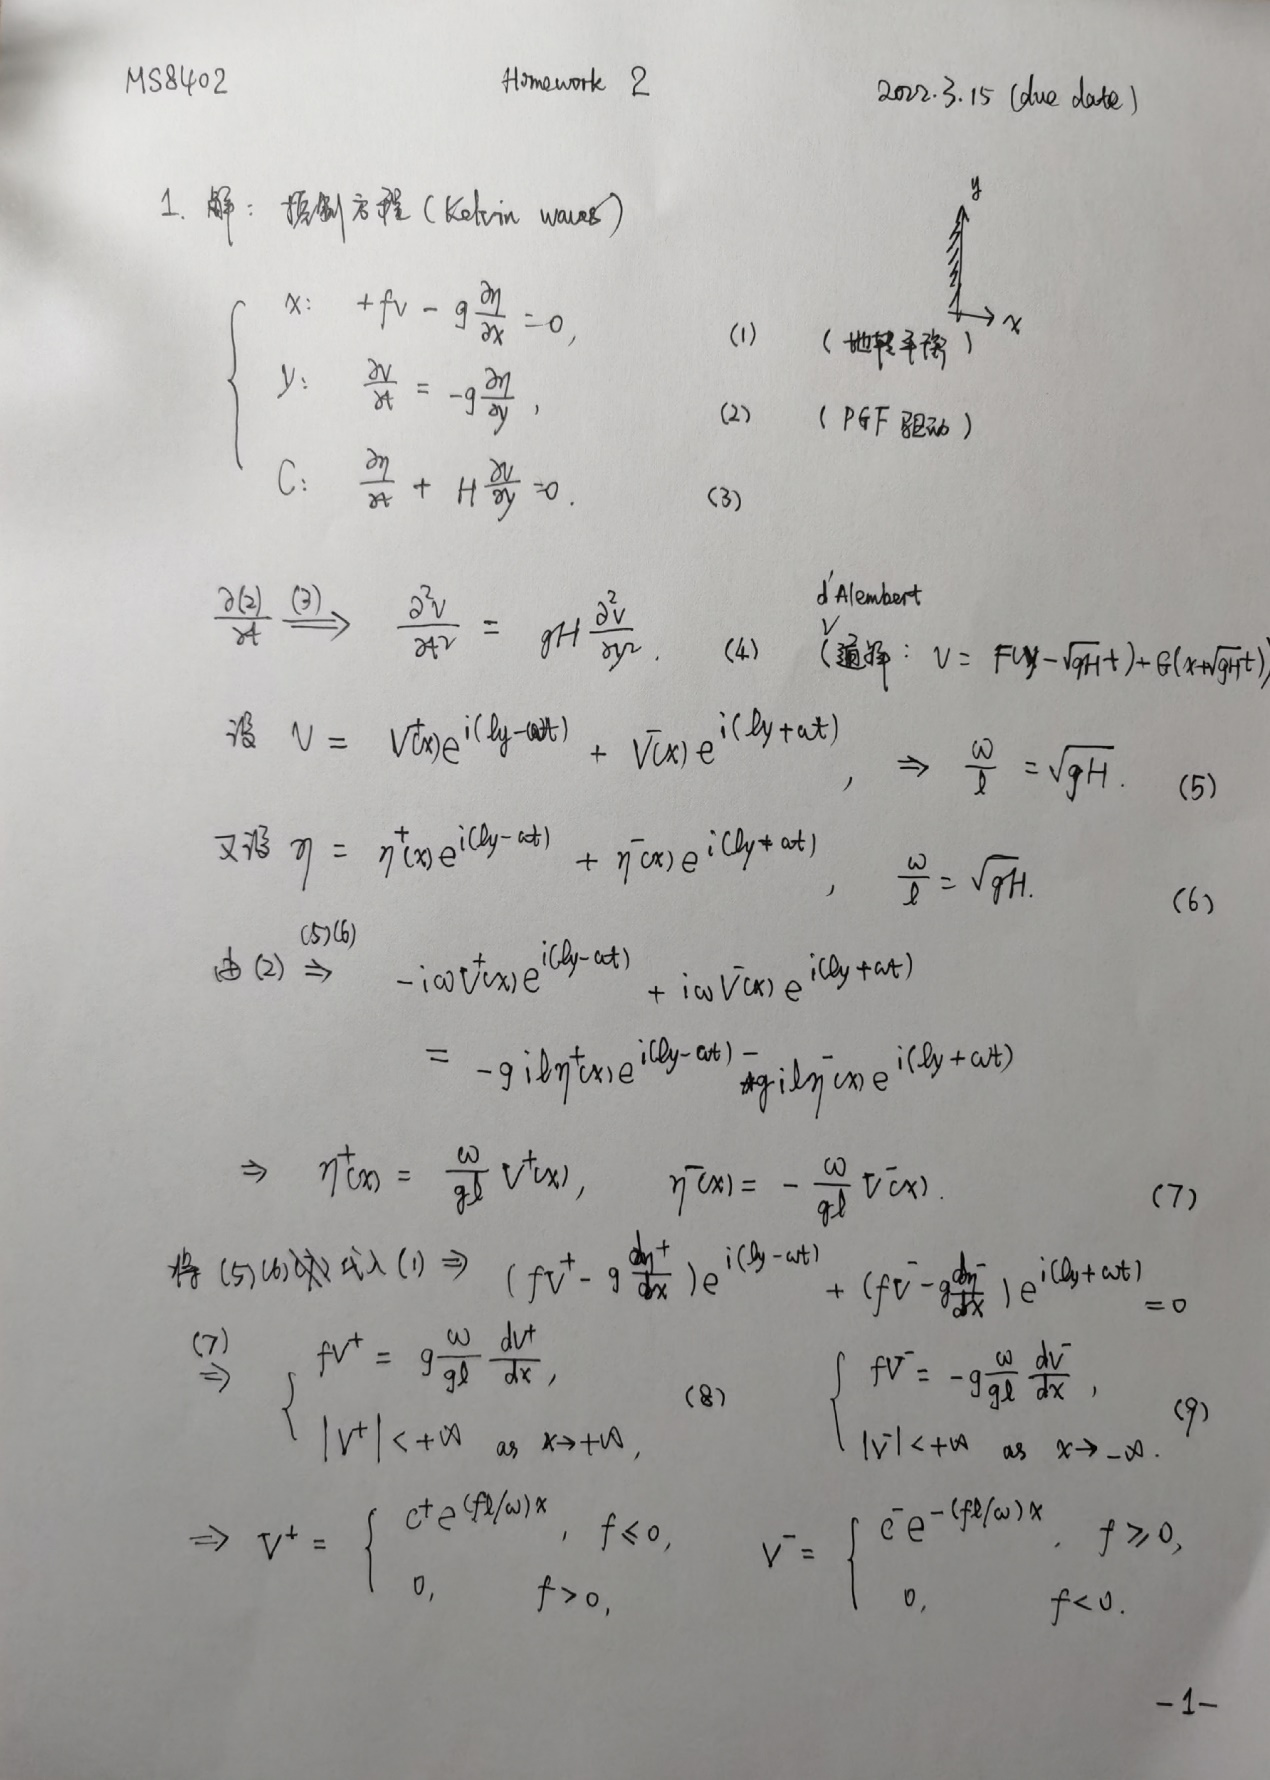 MS8402 Homework 2 2022.3.15 (due date)
1. 解: 控制方程 (Kelvin waves)
y
x
x: +fv - g ∂η/∂x = 0, (1) (地转平衡)
y: ∂v/∂t = -g ∂η/∂y, (2) (PGF 驱动)
C: ∂η/∂t + H ∂v/∂y = 0. (3)
d'Alembert
∂(2)/∂t (3)⟹ ∂²v/∂t² = gH ∂²v/∂y². (4) (通解: v = F(y-√gH t) + G(x+√gH t))
设 v = V⁺(x)e^{i(ly-ωt)} + V⁻(x)e^{i(ly+ωt)}, ⇒ ω/l = √gH. (5)
又设 η = η⁺(x)e^{i(ly-ωt)} + η⁻(x)e^{i(ly+ωt)}, ω/l = √gH. (6)
由 (2) (5)(6)⇒ -iωV⁺(x)e^{i(ly-ωt)} + iωV⁻(x)e^{i(ly+ωt)}
= -gilη⁺(x)e^{i(ly-ωt)} - gilη⁻(x)e^{i(ly+ωt)}
⇒ η⁺(x) = ω/gl V⁺(x), η⁻(x) = - ω/gl V⁻(x). (7)
将 (5)(6) 代入 (1) ⇒ (fV⁺ - g dη⁺/dx)e^{i(ly-ωt)} + (fV⁻ - g dη⁻/dx)e^{i(ly+ωt)} = 0
(7)⇒ { fV⁺ = g ω/gl dV⁺/dx, (8) { fV⁻ = -g ω/gl dV⁻/dx, (9)
|V⁺| < +∞ as x→+∞, |V⁻| < +∞ as x→-∞.
⇒ V⁺ = { c⁺e^{(fl/ω)x}, f ≤ 0, V⁻ = { c⁻e^{-(fl/ω)x}, f ≥ 0,
0, f > 0, 0, f < 0.
-1-